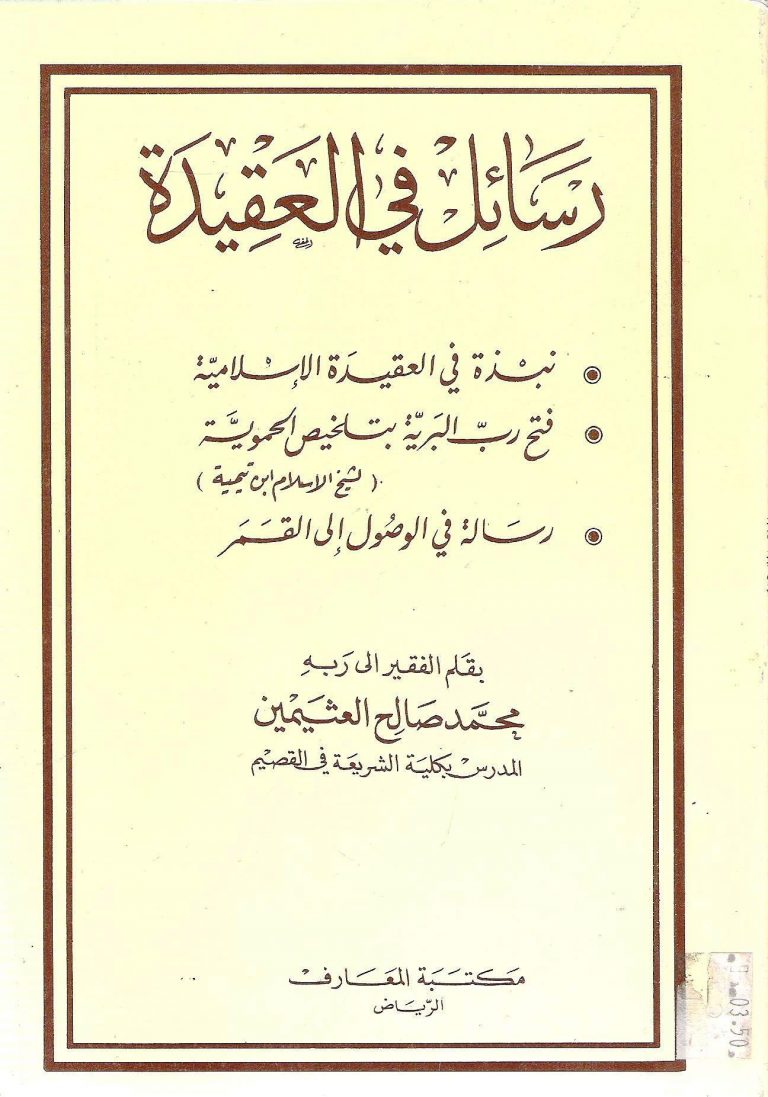 رسَائِل في العَقِيدَة
نبْذة في العقيدَة الإسْلاميّة
فتح ربّ البَريّة بتلخيص الحمويَّة
( لشيخ الاسلام ابن تيمية )
رسَالة في الوصُول إلى القَمَر
بقَلم الفقير الى رَبهِ
محمَّد صَالِح العثيَمين
المدرسْ بكلية الشريعَة في القصيْم
مكتَبة المعَارفْ
الريَاض
03.50